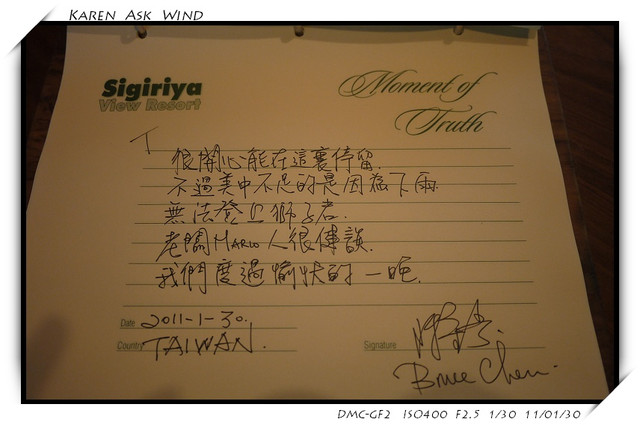 Karen Ask Wind
Sigiriya
View Resort
Moment of
Truth
很開心能在這裏停留.
不過美中不足的是因為下雨
無法登上獅子岩.
老闆Mario人很健談.
我們度過愉快的一晚.
Date 2011-1-30.
Country TAIWAN.
Signature
Bruce Chen.
DMC-GF2 ISO400 F2.5 1/30 11/01/30